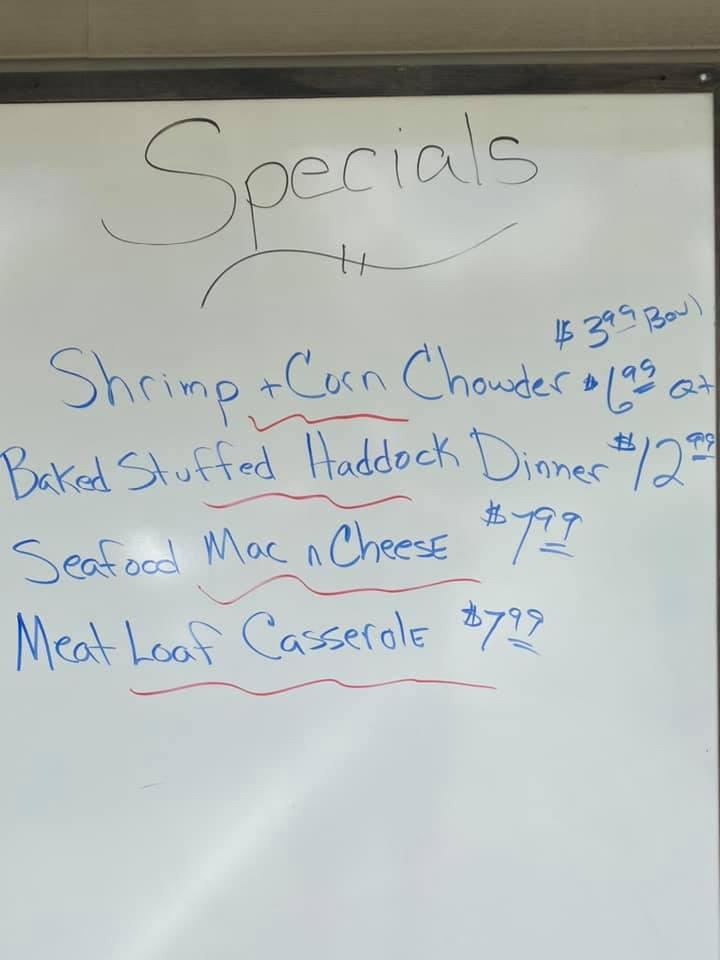 Specials
$3.99 Bowl
Shrimp + Corn Chowder $6.99 Qt
Baked Stuffed Haddock Dinner $12.99
Seafood Mac n Cheese $7.99
Meat Loaf Casserole $7.99